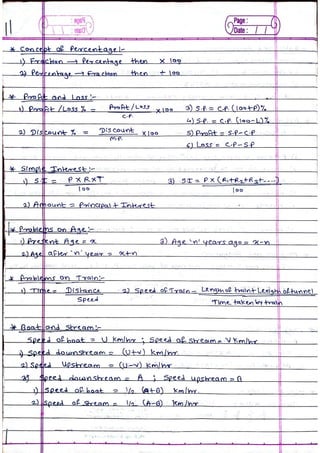 11
Page :
Date : / /
* Concept of Percentage :-
1) Fraction → Percentage then × 100
2) Percentage → Fraction then ÷ 100
* Profit and Loss :-
1) Profit / Loss % = Profit / Loss / C.P × 100 3) S.P = C.P (100+P)%
4) S.P = C.P (100-L)%
2) Discount % = Discount / M.P. × 100 5) Profit = S.P-C.P
6) Loss = C.P-S.P
* Simple Interest :-
1) S.I = P×R×T / 100 3) SI = P×(R1+R2+R3+.....) / 100
2) Amount = Principal + Interest
* Problems on Age :-
1) Present Age = x 3) Age 'n' years ago = x-n
2) Age after 'n' year = x+n
* Problems on Train :-
1) Time = Distance / Speed 2) Speed of Train = Length of train + Length of tunnel / Time taken by train
* Boat and Stream :-
Speed of boat = U km/hr ; Speed of Stream = V km/hr
1) Speed downstream = (U+V) km/hr
2) Speed Upstream = (U-V) km/hr
Speed downstream = A ; Speed upstream = B
1) Speed of boat = 1/2 (A+B) km/hr
2) Speed of Stream = 1/2 (A-B) km/hr